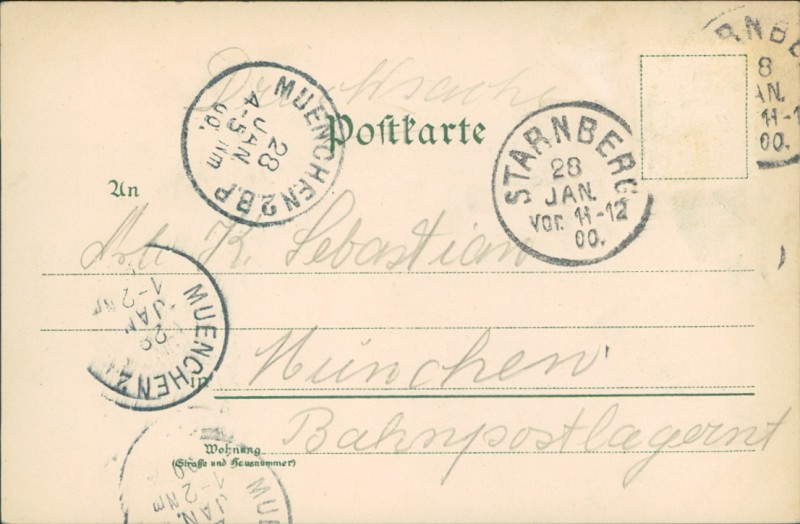 Drucksache
Postkarte
MUENCHEN 2 B.P.
28
JAN
4-5 Nm
00.
STARNBERG
28
JAN.
Vor. 11-12
00.
RNBE
8
AN.
11-1
00.
An
K. Sebastian
MUENCHEN 2
JAN
1-2 Nm
in München
Bahnpostlagernt
Wohnung
(Straße und Hausnummer)
MU
JAN.
1-2 Nm